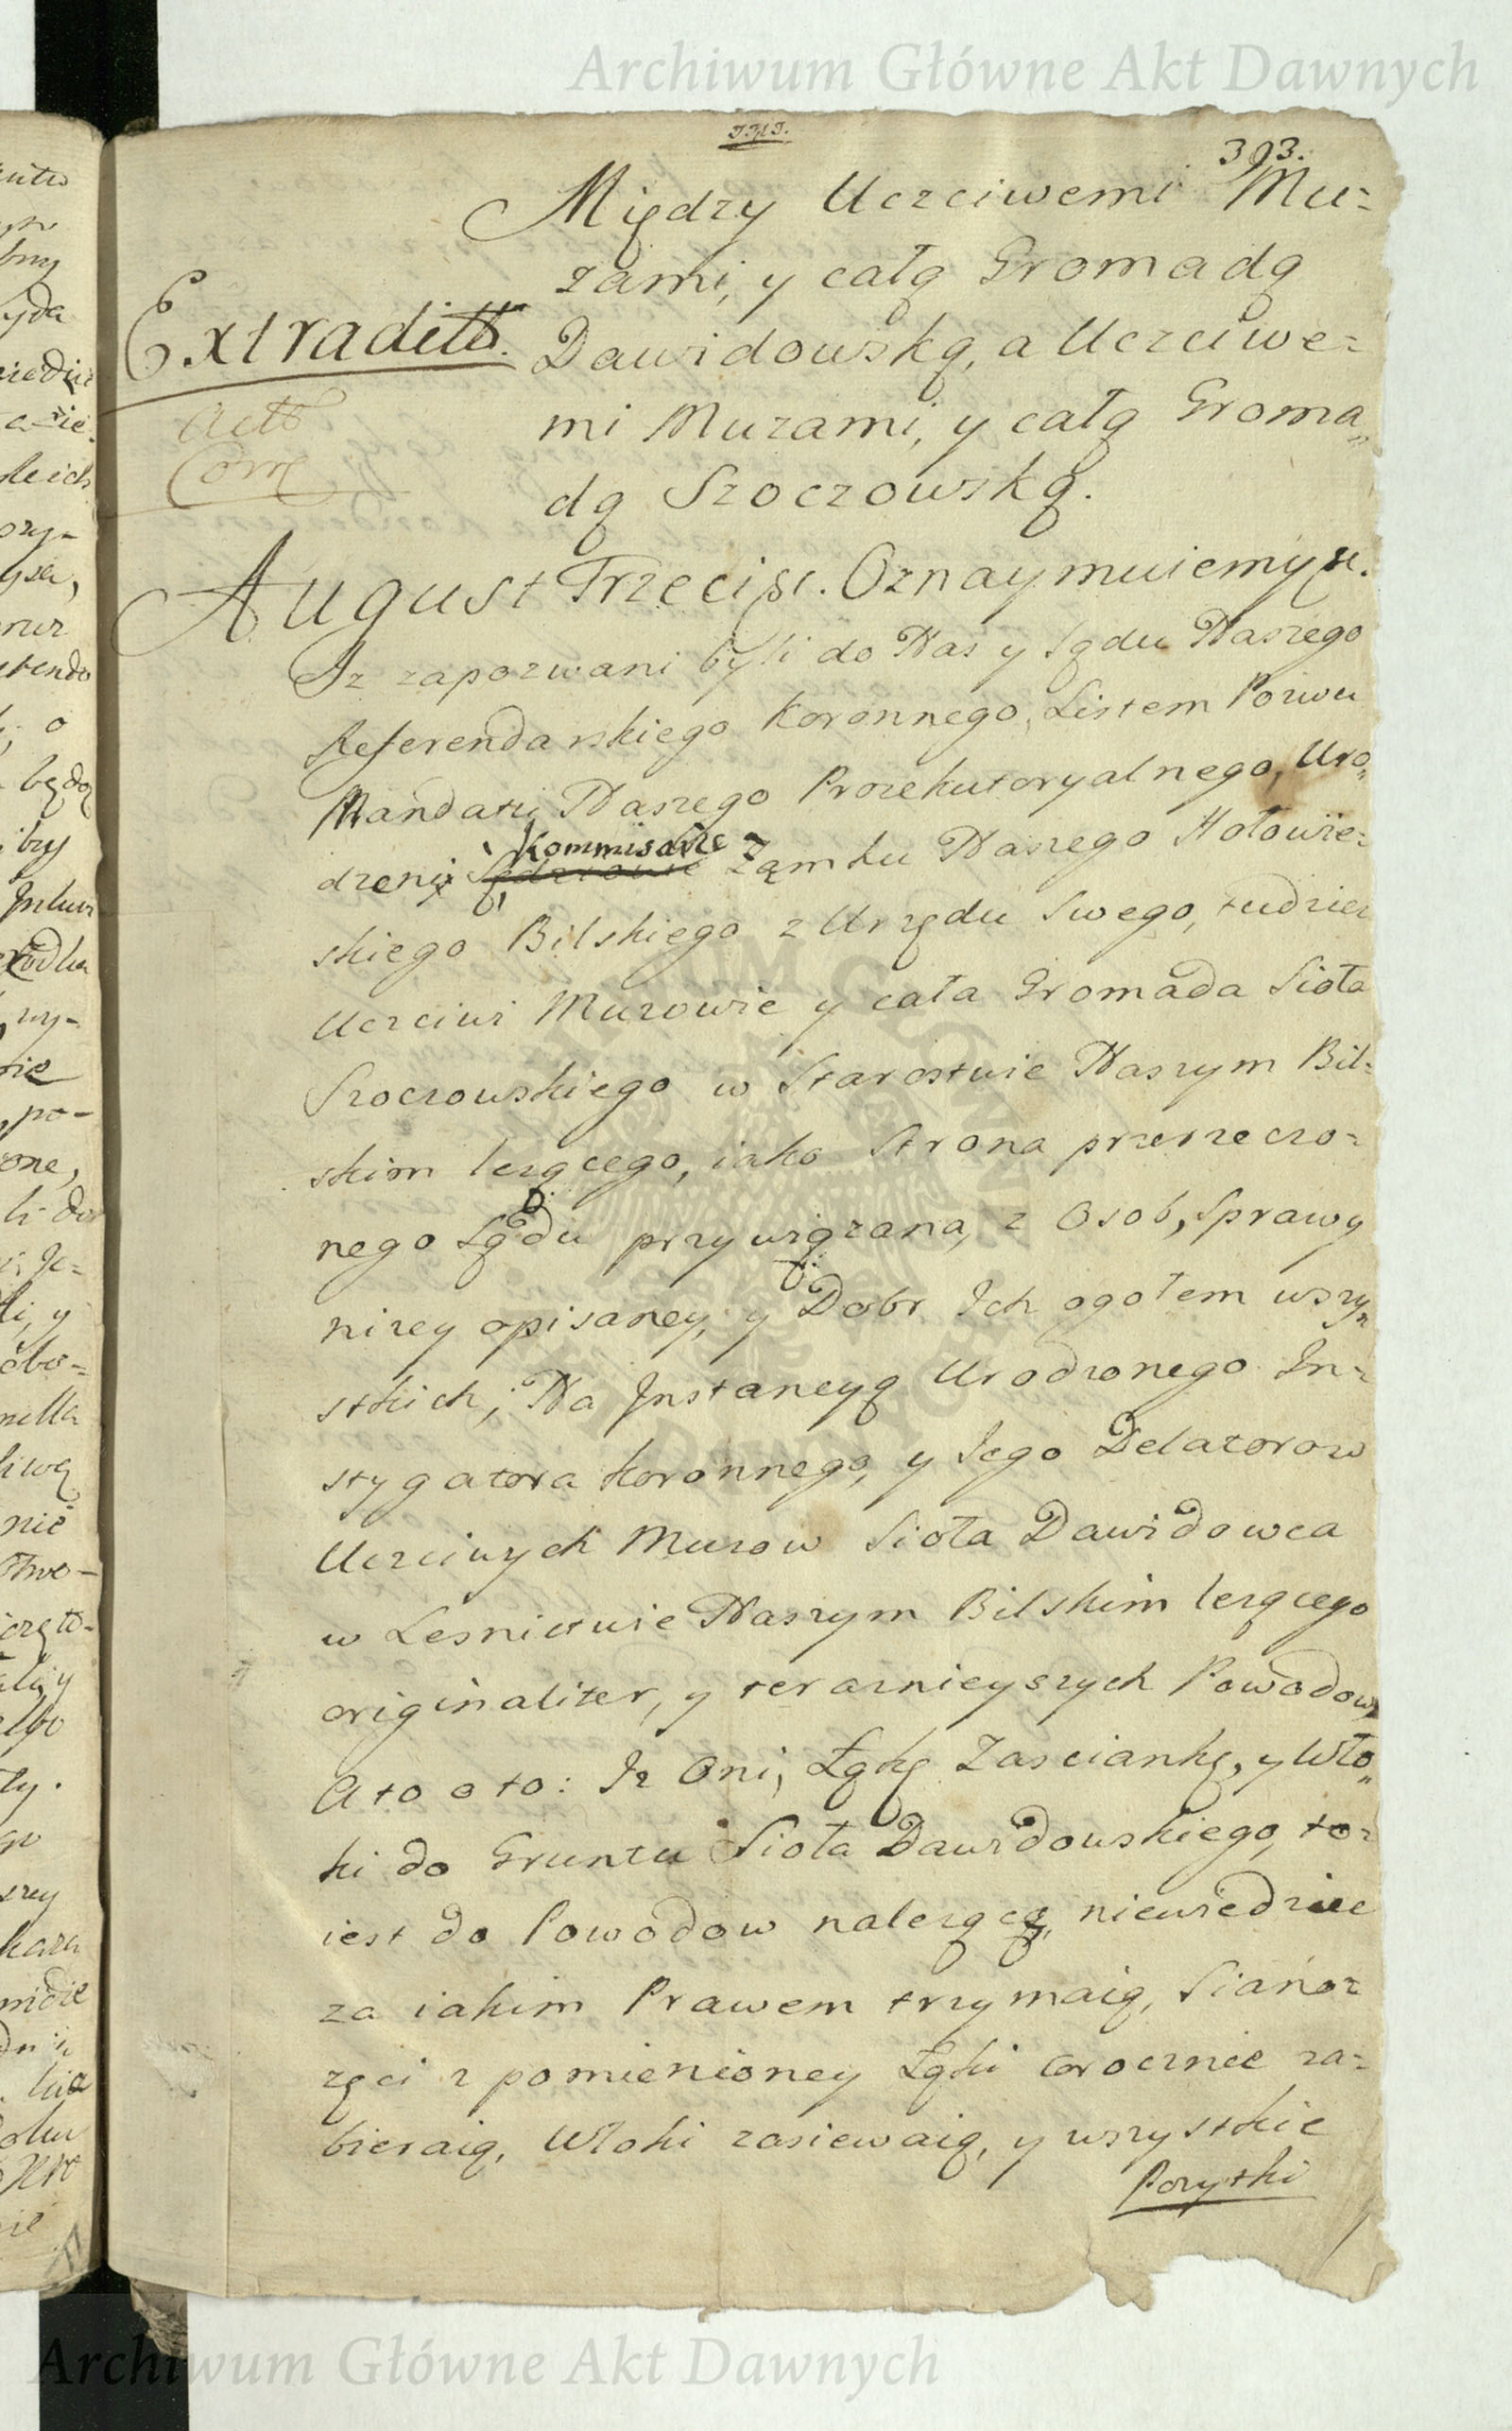 Archiwum Główne Akt Dawnych
393.
Między Uczciwemi Mu-
zami, y całą Gromadą
Extraditt.
Dawidowską, a Uczciwe-
mi Muzami, y całą Groma„
Actt
Com
dą Szoczowską.
August Trzeci &c. Oznaymuiemy &c.
Iz zapozwani byli do Nas y Sądu Naszego
Referendarskiego Koronnego, Listem Pozwu
Mandatu Naszego Prozekutoryalnego, Uro„
Kommisarze
dzeni Zamku Naszego Hołowie-
skiego Bilskiego z Urzędu Swego, tudziez
Uczciwi Muzowie y cała Gromada Sioła
Szoczowskiego w Starostwie Naszym Bil-
skim lezącego, iako Strona przerzeczo-
nego Sądu przywiązana, z Osob, Sprawy
nizey opisaney, y Dobr Ich ogołem wszy„
stkich; Na Instancyą Urodzonego In-
stygatora Koronnego, y Iego Delatorow
Uczciwych Muzow Sioła Dawidowca
w Lesnictwie Naszym Bilskim lezącego
originaliter, y teraznieyszych Powodow,
A to o to: Iz Oni, Łąkę Zasciankę, y Wło„
ki do Gruntu Sioła Dawidowskiego, to-
iest do Powodow nalezące, niewiedziec
za iakim Prawem trzymaią, Siano-
zęci z pomienioney Łąki corocznie za-
bieraią, Włoki zasiewaią, y wszystkie
Pozytki
Archiwum Główne Akt Dawnych